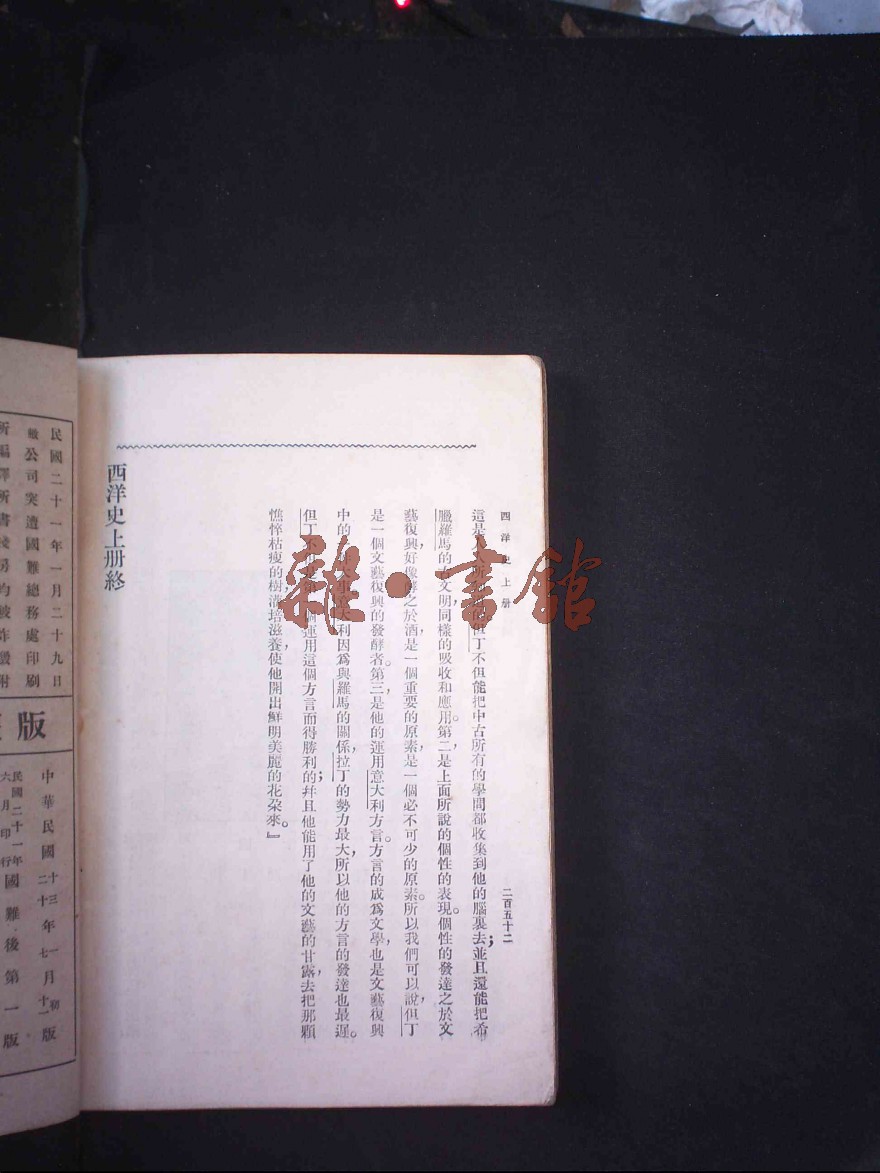 西洋史上册
二百五十二
這是不但能把中古所有的學問都收集到他的腦裏去;並且還能把希
臘羅馬的文明,同樣的吸收和應用。第二,是上面所說的個性的表現。個性的發達之於文
藝復興,好像之於酒,是一個重要的原素,是一個必不可少的原素。所以我們可以說,但丁
是一個文藝復興的發酵者。第三,是他的運用意大利方言。方言的成爲文學,也是文藝復興
中的大利因爲與羅馬的關係,拉丁的勢力最大,所以他的方言的發達也最遲。
但丁不運用這個方言而得勝利的;幷且他能用了他的文藝的甘露,去把那顆
憔悴枯瘦的樹灌培滋養,使他開出鮮明美麗的花朶來。』
西洋史上册終
雜·書館
民國二十一年一月二十九日
公司突遭國難總務處印刷
所編譯所書棧房均被炸燬附
版
中華民國十三年一月初版
民國二十一年
六月印行國難後第一版